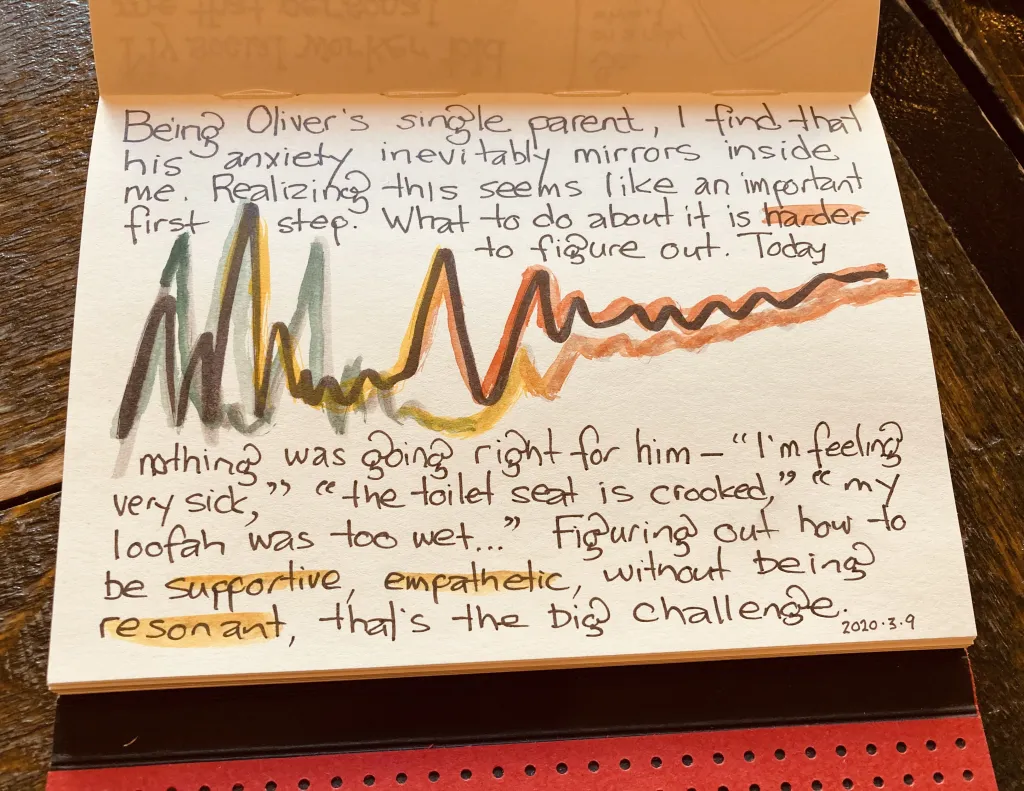 Being Oliver's single parent, I find that
his anxiety inevitably mirrors inside
me. Realizing this seems like an important
first step. What to do about it is harder
to figure out. Today
nothing was going right for him – "I'm feeling
very sick," "the toilet seat is crooked," "my
loofah was too wet..." Figuring out how to
be supportive, empathetic, without being
resonant, that's the big challenge.
2020.3.9